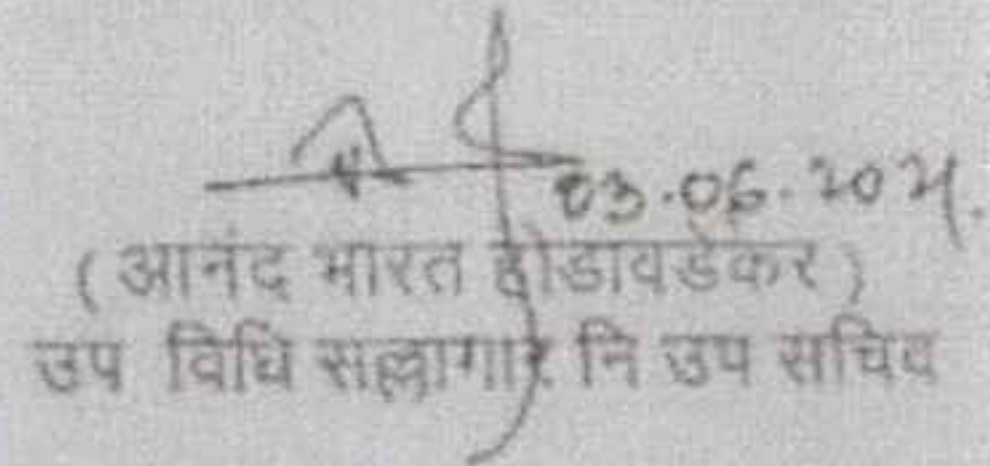 03.06.2021.
( आनंद भारत होडावडेकर )
उप विधि सल्लागार नि उप सचिव